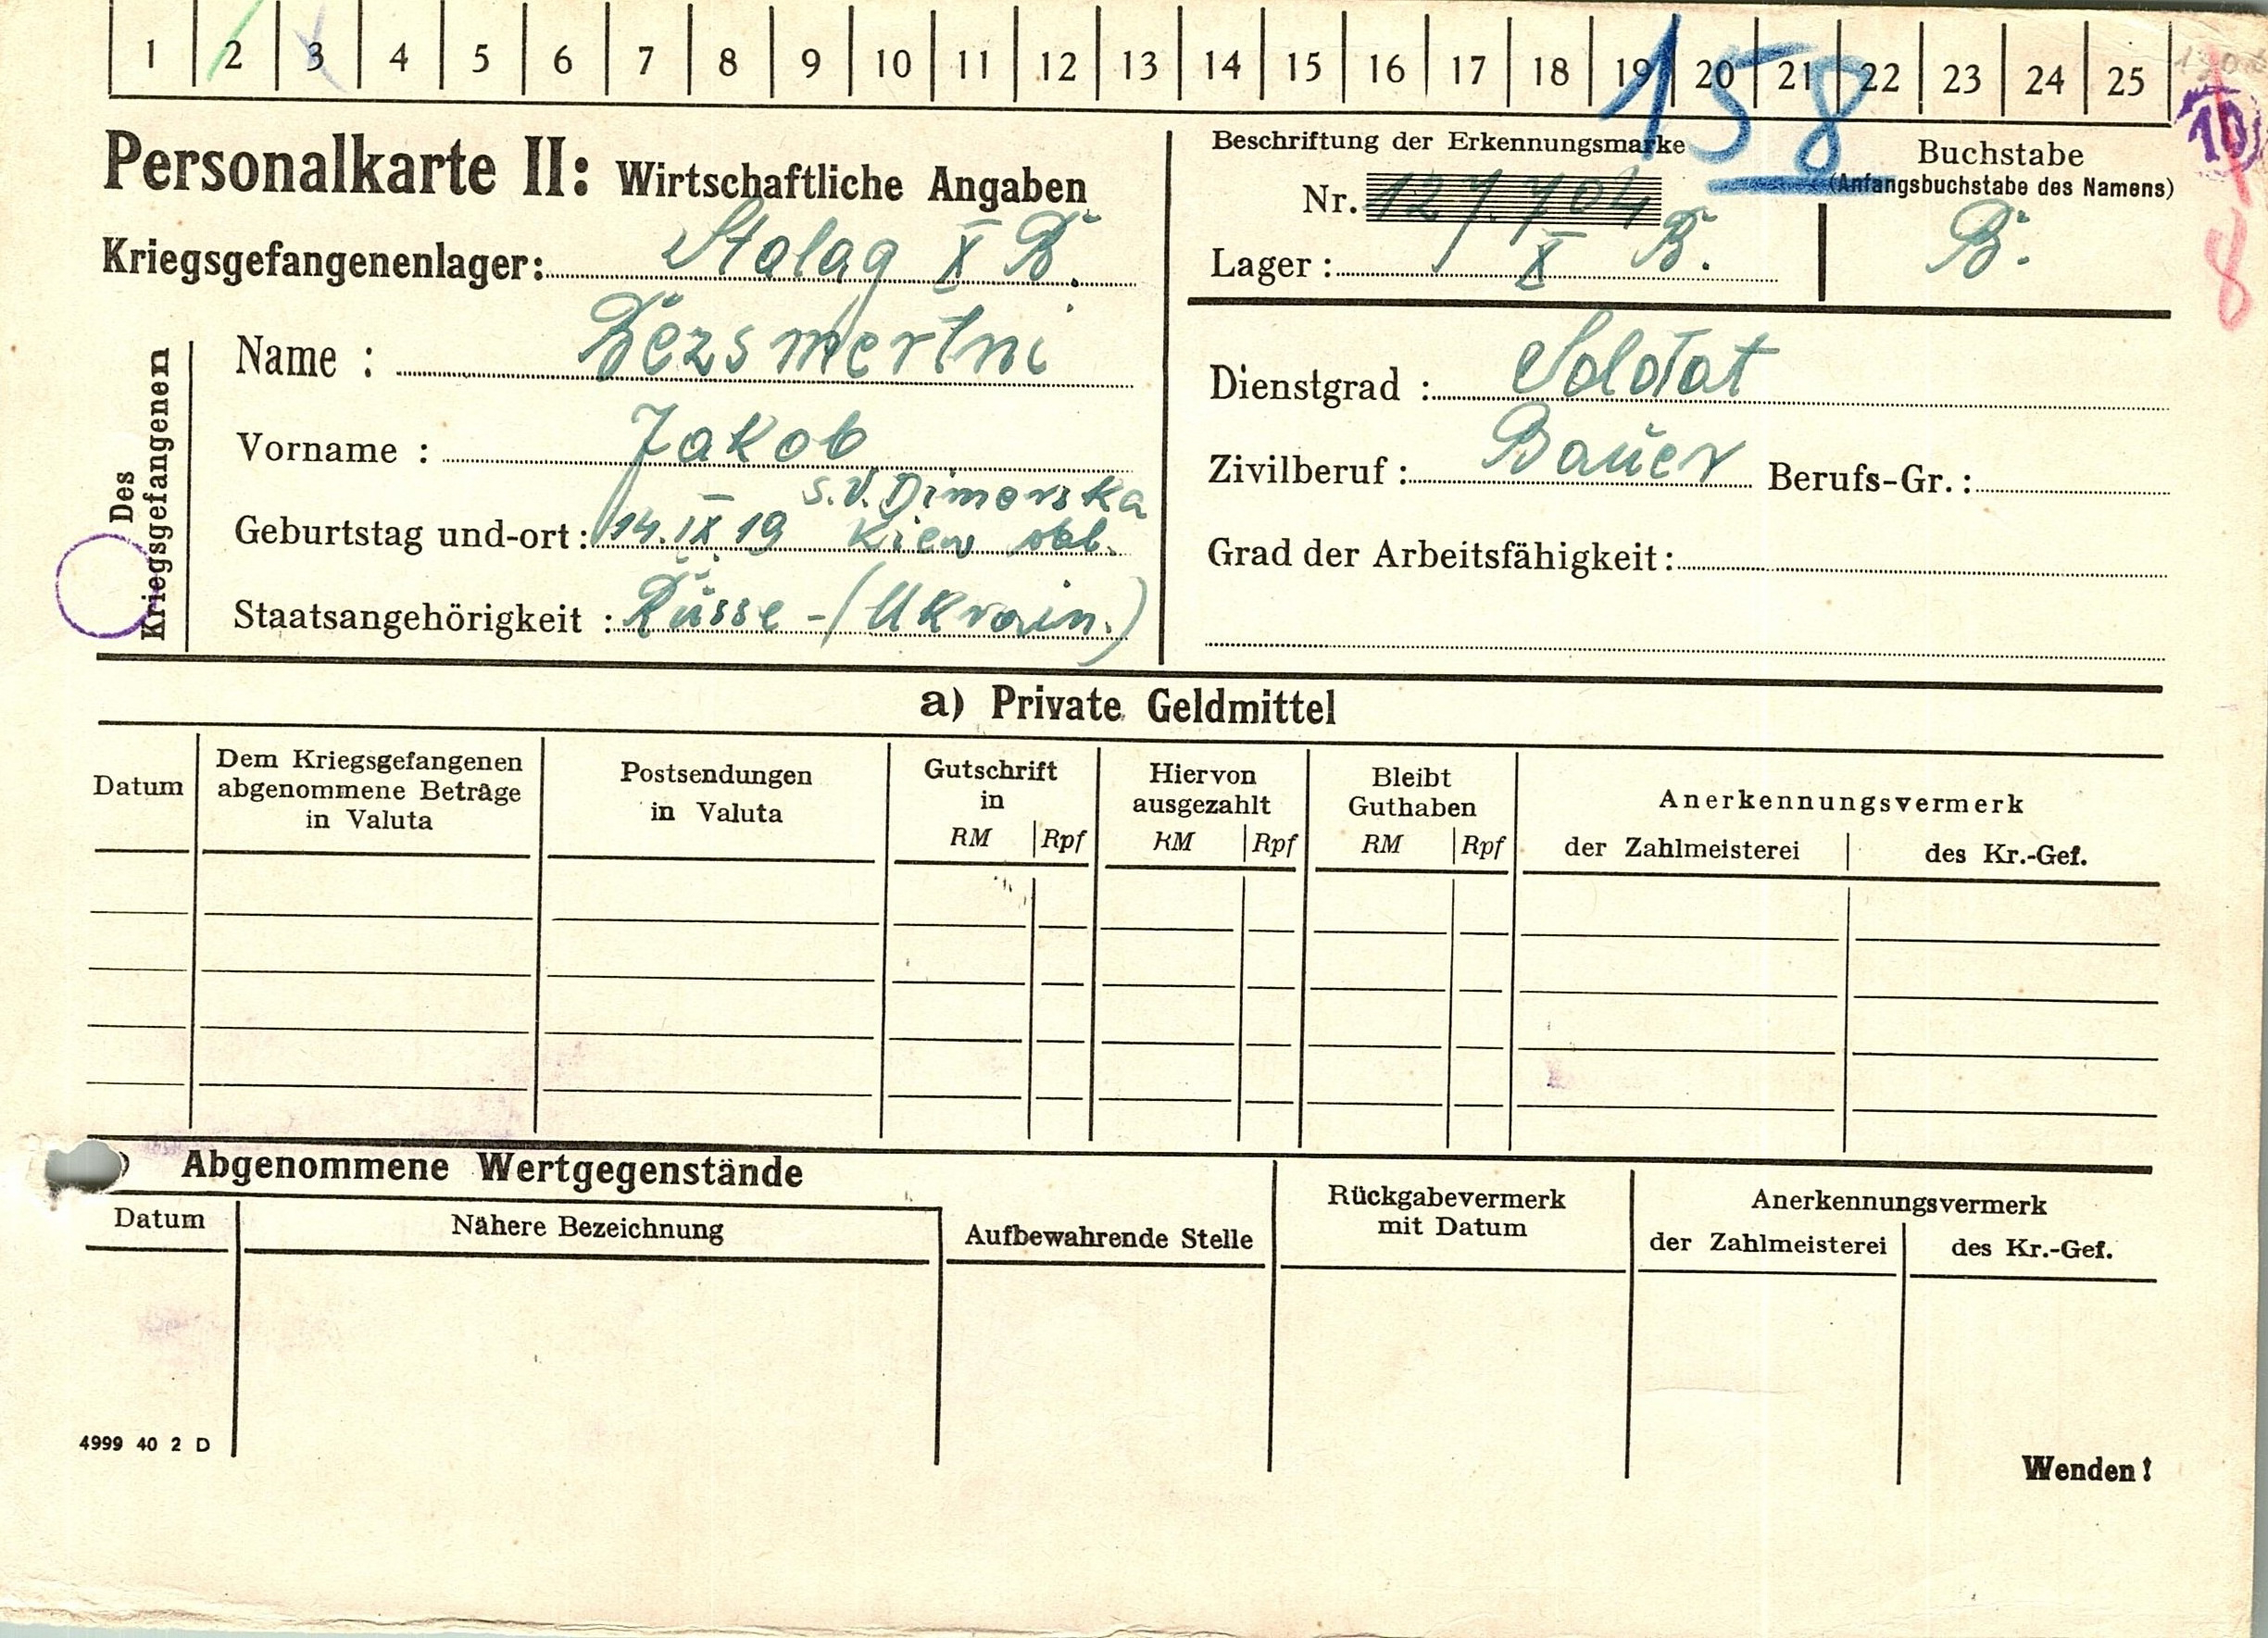 1 2 3 4 5 6 7 8 9 10 11 12 13 14 15 16 17 18 19 20 21 22 23 24 25
158
10
8
Personalkarte II: Wirtschaftliche Angaben
Kriegsgefangenenlager: Stalag X B.
Beschriftung der Erkennungsmarke
Nr. 127.704
Lager: X B.
Buchstabe
(Anfangsbuchstabe des Namens)
B.
Des Kriegsgefangenen
Name : Bezsmertni
Vorname : Jakob
s.V. Dimerska
Geburtstag und-ort: 14.IX 19 Kiew obl.
Staatsangehörigkeit : Russe-(Ukrain.)
Dienstgrad : Soldat
Zivilberuf: Bauer Berufs-Gr.:
Grad der Arbeitsfähigkeit:
a) Private Geldmittel
Datum
Dem Kriegsgefangenen
abgenommene Beträge
in Valuta
Postsendungen
in Valuta
Gutschrift
in
RM Rpf
Hiervon
ausgezahlt
RM Rpf
Bleibt
Guthaben
RM Rpf
Anerkennungsvermerk
der Zahlmeisterei des Kr.-Gef.
) Abgenommene Wertgegenstände
Datum
Nähere Bezeichnung
Aufbewahrende Stelle
Rückgabevermerk
mit Datum
Anerkennungsvermerk
der Zahlmeisterei des Kr.-Gef.
4999 40 2 D
Wenden!